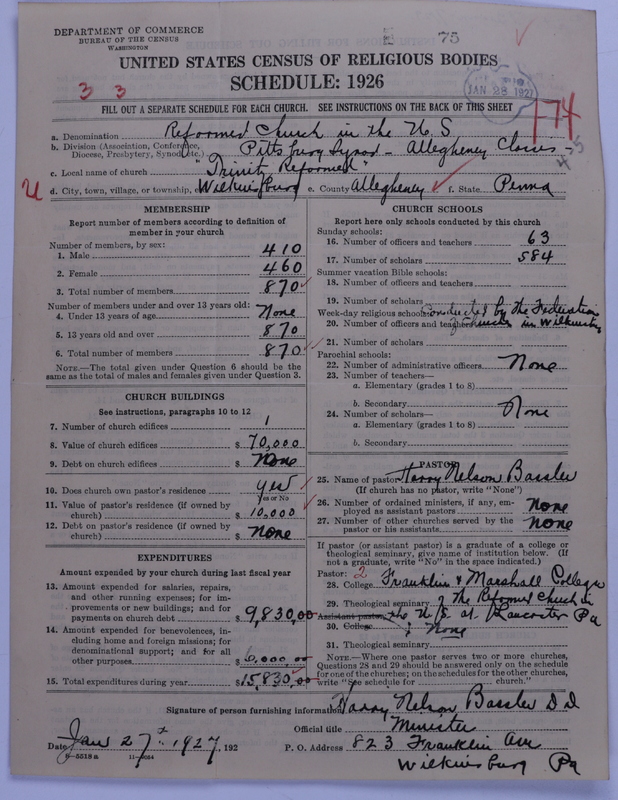 DEPARTMENT OF COMMERCE
BUREAU OF THE CENSUS
WASHINGTON
75
UNITED STATES CENSUS OF RELIGIOUS BODIES
SCHEDULE: 1926
JAN 28 1927
3 3
174
FILL OUT A SEPARATE SCHEDULE FOR EACH CHURCH. SEE INSTRUCTIONS ON THE BACK OF THIS SHEET
a. Denomination Reformed Church in the U.S
b. Division (Association, Conference, Diocese, Presbytery, Synod, etc.) Pittsburg Synod - Allegheny Classis -
45
c. Local name of church "Trinity Reformed"
d. City, town, village, or township, Wilkinsburg e. County Allegheney f. State Penna
MEMBERSHIP
Report number of members according to definition of
member in your church
Number of members, by sex:
1. Male 410
2. Female 460
3. Total number of members 870
Number of members under and over 13 years old:
4. Under 13 years of age None
5. 13 years old and over 870
6. Total number of members 870
NOTE.—The total given under Question 6 should be
same as the total of males and females given under Question 3.
CHURCH BUILDINGS
See instructions, paragraphs 10 to 12
7. Number of church edifices 1
8. Value of church edifices $ 70,000
9. Debt on church edifices $ None
10. Does church own pastor's residence yes
Yes or No
11. Value of pastor's residence (if owned by
church) $ 10,000
12. Debt on pastor's residence (if owned by
church) $ None
EXPENDITURES
Amount expended by your church during last fiscal year
13. Amount expended for salaries, repairs,
and other running expenses; for im-
provements or new buildings; and for
payments on church debt $ 9,830,00
14. Amount expended for benevolences, in-
cluding home and foreign missions; for
denominational support; and for all
other purposes $ 6,000,00
15. Total expenditures during year $ 15,830,00
CHURCH SCHOOLS
Report here only schools conducted by this church
Sunday schools:
16. Number of officers and teachers 63
17. Number of scholars 584
Summer vacation Bible schools:
18. Number of officers and teachers
19. Number of scholars
Week-day religious schools: Conducted by the Federation
20. Number of officers and teachers in Wilkinsburg
21. Number of scholars
Parochial schools:
22. Number of administrative officers None
23. Number of teachers—
a. Elementary (grades 1 to 8)
b. Secondary
24. Number of scholars— None
a. Elementary (grades 1 to 8)
b. Secondary
PASTOR
25. Name of pastor Harry Nelson Bassler
(If church has no pastor, write "None")
26. Number of ordained ministers, if any, em-
ployed as assistant pastors None
27. Number of other churches served by the
pastor or his assistants None
If pastor (or assistant pastor) is a graduate of a college or
theological seminary, give name of institution below. (If
not a graduate, write "No" in the space indicated.)
Pastor: 2
28. College Franklin & Marshall College
29. Theological seminary of the Reformed Church in
Assistant pastor: the U.S. at Lancaster Pa
30. College None
31. Theological seminary
NOTE.—Where one pastor serves two or more churches,
Questions 28 and 29 should be answered only on the schedule
for one of the churches; on the schedules for the other churches,
write "See schedule for church."
Signature of person furnishing information Harry Nelson Bassler D D
Official title Minister
Date Jan 27th 1927, 192
P. O. Address 823 Franklin Ave
Wilkinsburg Pa